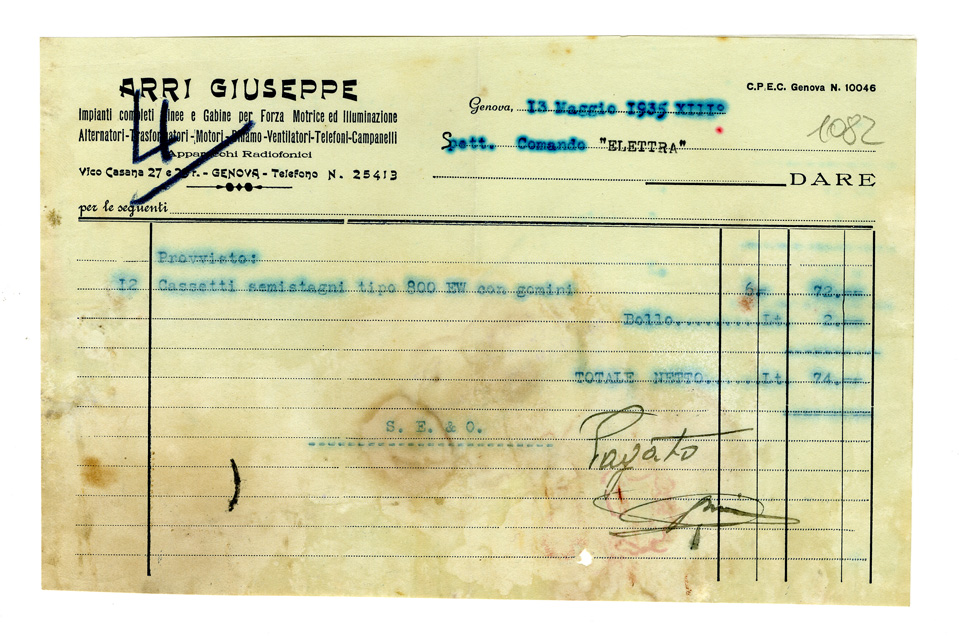 ARRI GIUSEPPE
Impianti completi Linee e Gabine per Forza Motrice ed Illuminazione
Alternatori-Trasformatori-Motori-Dinamo-Ventilatori-Telefoni-Campanelli
Apparecchi Radiofonici
Vico Casana 27 e r. - GENOVA - Telefono N. 25413
4
C.P.E.C. Genova N. 10046
Genova, 13 Maggio 1935 XIIIº
1082
Spett. Comando "ELETTRA"
DARE
per le seguenti
Provvisto:
12 Cassetti semistagni tipo 800 EW con gomini 6= 72.==
Bollo........Lt 2.==
TOTALE NETTO......Lt 74.==
S. E. & O.
Pagato